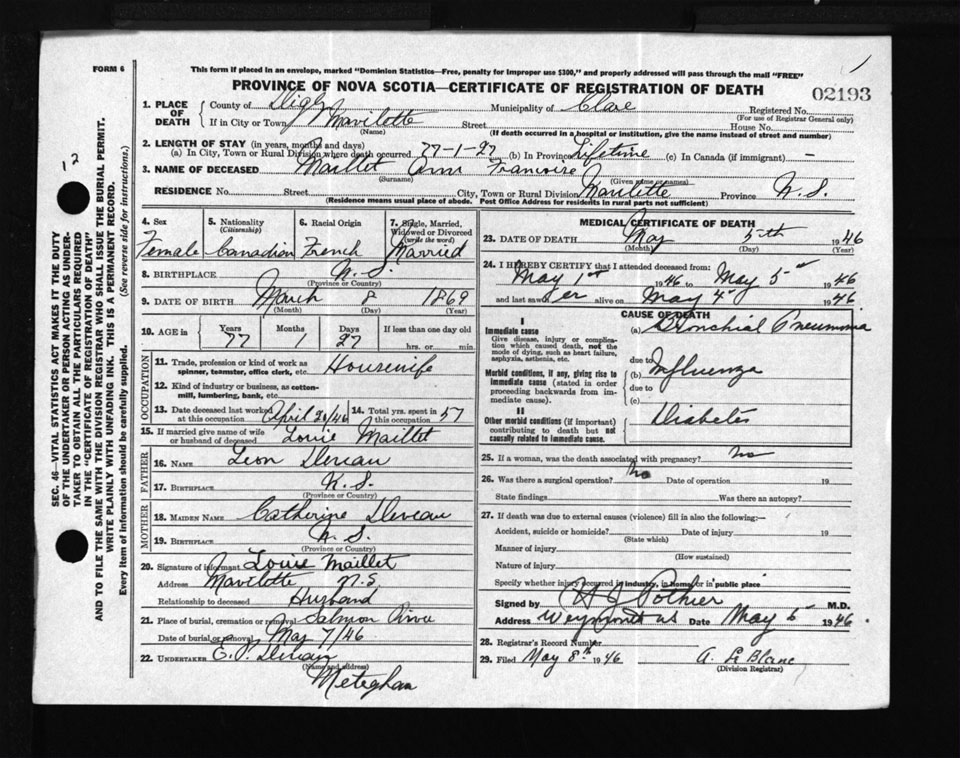 FORM 6
This form if placed in an envelope, marked "Dominion Statistics—Free, penalty for improper use $300," and properly addressed will pass through the mail "FREE"
PROVINCE OF NOVA SCOTIA—CERTIFICATE OF REGISTRATION OF DEATH
02193
1
12
SEC. 46—VITAL STATISTICS ACT MAKES IT THE DUTY
OF THE UNDERTAKER OR PERSON ACTING AS UNDER-
TAKER TO OBTAIN ALL THE PARTICULARS REQUIRED
IN THE "CERTIFICATE OF REGISTRATION OF DEATH"
AND TO FILE THE SAME WITH THE DIVISION REGISTRAR WHO SHALL ISSUE THE BURIAL PERMIT.
WRITE PLAINLY WITH UNFADING INK—THIS IS A PERMANENT RECORD.
Every item of information should be carefully supplied. (See reverse side for instructions.)
1. PLACE OF DEATH County of Digby Municipality of Clare Registered No.
(For use of Registrar General only)
If in City or Town Mavilette Street House No.
(Name) (If death occurred in a hospital or institution, give the name instead of street and number)
2. LENGTH OF STAY (in years, months and days)
(a) In City, Town or Rural Division where death occurred 77-1-27 (b) In Province Lifetime (c) In Canada (if immigrant) —
3. NAME OF DECEASED Maillet Ann Francoise
(Surname) (Given name or names)
RESIDENCE No. Street City, Town or Rural Division Mavilette Province N.S.
(Residence means usual place of abode. Post Office Address for residents in rural parts not sufficient)
4. Sex 5. Nationality (Citizenship) 6. Racial Origin 7. Single, Married, Widowed or Divorced (write the word)
Female Canadian French Married
8. BIRTHPLACE N.S.
(Province or Country)
9. DATE OF BIRTH March 8 1869
(Month) (Day) (Year)
10. AGE in Years Months Days If less than one day old
77 1 27 hrs. or min.
OCCUPATION
11. Trade, profession or kind of work as spinner, teamster, office clerk, etc. Housewife
12. Kind of industry or business, as cotton-mill, lumbering, bank, etc.
13. Date deceased last worked at this occupation April 26/46 14. Total yrs. spent in this occupation 57
15. If married give name of wife or husband of deceased Louie Maillet
FATHER
16. NAME Leon Deveau
17. BIRTHPLACE N.S.
(Province or Country)
MOTHER
18. MAIDEN NAME Catherine Deveau
19. BIRTHPLACE N.S.
(Province or Country)
20. Signature of informant Louie Maillet
Address Mavilette N.S.
Relationship to deceased Husband
21. Place of burial, cremation or removal Salmon River
Date of burial or removal May 7/46
22. UNDERTAKER E.P. Deveau
(Name and address)
Meteghan
MEDICAL CERTIFICATE OF DEATH
23. DATE OF DEATH May 5th 1946
(Month) (Day) (Year)
24. I HEREBY CERTIFY that I attended deceased from:
May 1st 1946 to May 5th 1946
and last saw her alive on May 4th 1946
CAUSE OF DEATH
I
Immediate cause
Give disease, injury or complication which caused death, not the mode of dying, such as heart failure, asphyxia, asthenia, etc.
(a) Bronchial Pneumonia
due to
Morbid conditions, if any, giving rise to immediate cause (stated in order proceeding backwards from immediate cause).
(b) Influenza
due to
(c)
II
Other morbid conditions (if important) contributing to death but not causally related to immediate cause.
Diabetes
25. If a woman, was the death associated with pregnancy? No
26. Was there a surgical operation? No Date of operation 19
State findings Was there an autopsy?
27. If death was due to external causes (violence) fill in also the following:—
Accident, suicide or homicide? Date of injury 19
(State which)
Manner of injury
(How sustained)
Nature of injury
Specify whether injury occurred in industry, in home, or in public place
Signed by H J Pothier M.D.
Address Weymouth NS Date May 5 1946
28. Registrar's Record Number
29. Filed May 8th 1946 A. Le Blanc
(Division Registrar)